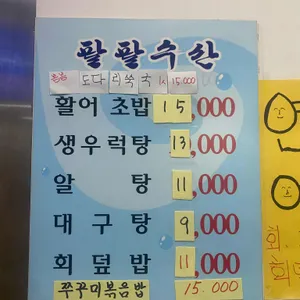 팔팔수산
도다리쑥국 1k 15,000
활어 초밥 15,000
생우럭탕 13,000
알 탕 11,000
대 구 탕 9,000
회 덮 밥 11,000
쭈꾸미볶음밥 15.000